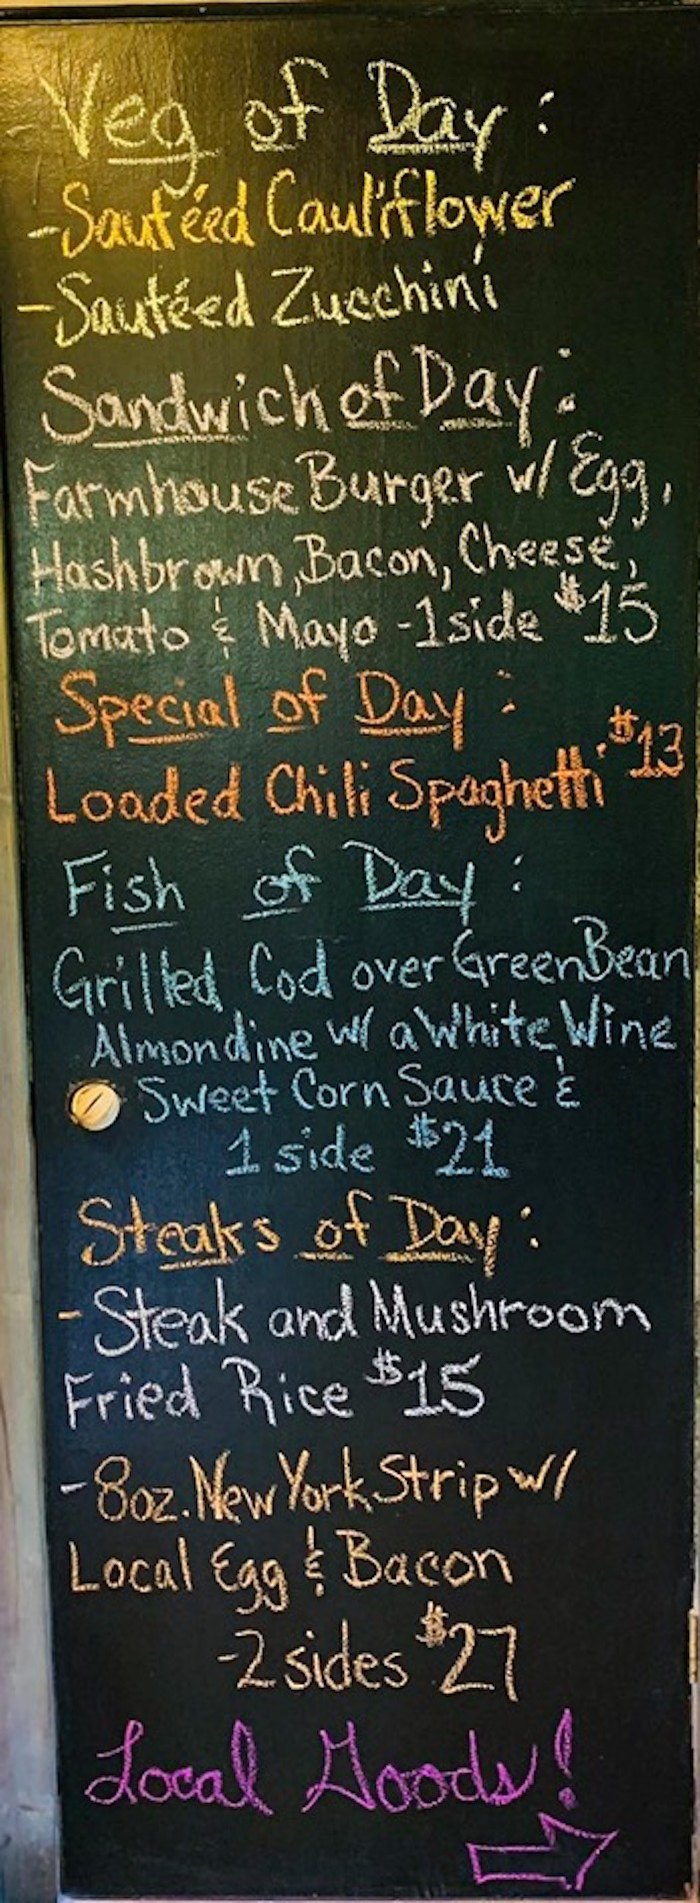 Veg of Day:
-Sautéed Cauliflower
-Sautéed Zucchini
Sandwich of Day:
Farmhouse Burger w/ Egg,
Hashbrown, Bacon, Cheese,
Tomato & Mayo -1 side $15
Special of Day:
Loaded Chili Spaghetti $13
Fish of Day:
Grilled Cod over Green Bean
Almondine w/ a White Wine
Sweet Corn Sauce &
1 side $21
Steaks of Day:
-Steak and Mushroom
Fried Rice $15
-8oz. New York Strip w/
Local Egg & Bacon
-2 sides $27
Local Goods!